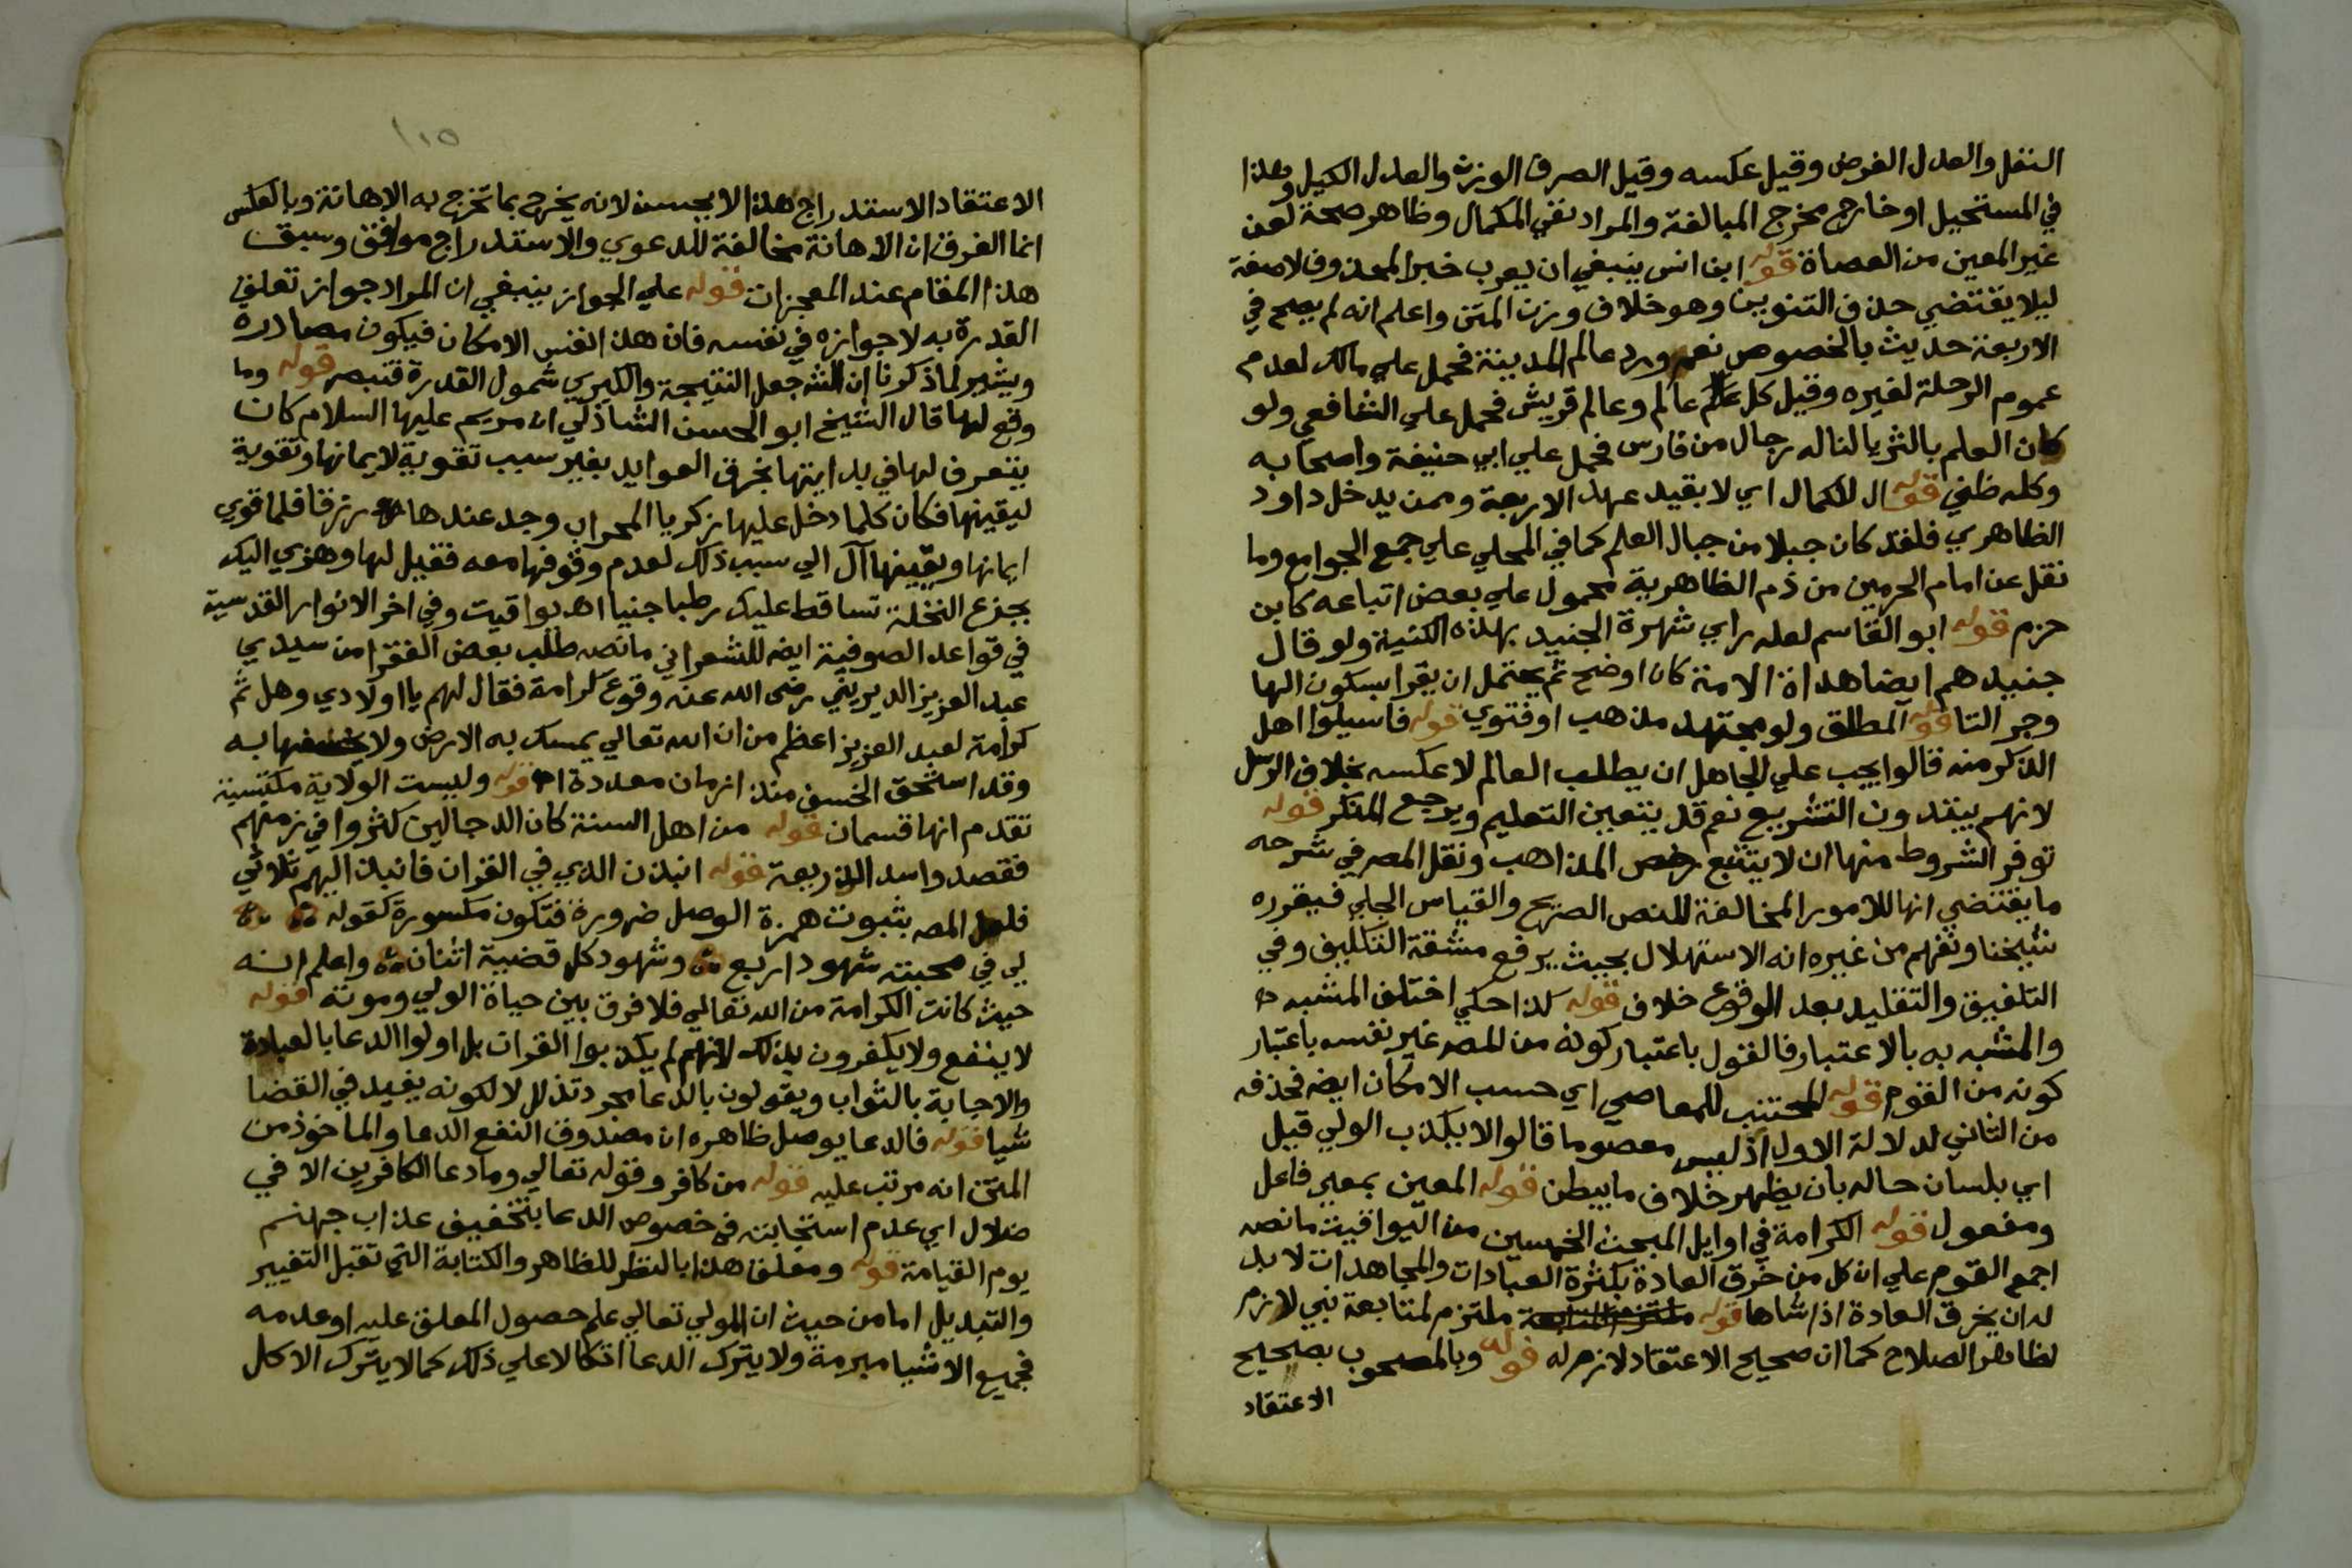 النفل والعدل الفرض وقيل عكسه وقيل الصرف الوزن والعدل الكيل وهذا
في المستحيل او خارج مخرج المبالغة والمراد نفي الكمال وظاهر صحة لعن
غير المعين من العصاة قوله ابن انس ينبغي ان يعرب خبر المحذوف لا صفة
ليلا يقتضي حذف التنوين وهو خلاف وزن المتن واعلم انه لم يصح في
الاربعة حديث بالخصوص نعم ورد عالم المدينة فحمل علي مالك لعدم
عموم الرحلة لغيره وقيل كل عالم وعالم قريش فحمل علي الشافعي ولو
كان العلم بالثريا لناله رجال من فارس فحمل علي ابي حنيفة واصحابه
وكله ظني قوله ال للكمال اي لا بقيد عهد الاربعة وممن يدخل داود
الظاهري فلقد كان جبلا من جبال العلم كما في المحلي علي جمع الجوامع وما
نقل عن امام الحرمين من ذم الظاهرية محمول علي بعض اتباعه كابن
حزم قوله ابو القاسم لعله راي شهرة الجنيد بهذه الكنية ولو قال
جنيدهم ايضا هداة الامة كان اوضح ثم يحتمل ان يقرا بسكون الها
وجر التا قوله المطلق ولو مجتهد مذهب او فتوي قوله فاسيلوا اهل
الذكر منه قالوا يجب علي الجاهل ان يطلب العالم لا عكسه بخلاف الرسل
لانهم يبتدون التشريع نعم قد يتعين التعليم ويرجع المنكر قوله
توفر الشروط منها ان لا يتتبع رخص المذاهب ونقل المصر في شرحه
ما يقتضي انها للامور المخالفة للنص الصريح والقياس الجلي فيقرره
شيخنا ونفهم من غيره انه الاستهلال بحيث يرفع مشقة التكليف وفي
التلفيق والتقليد بعد الوقوع خلاف قوله كذا حكي اختلف المشبه
والمشبه به بالاعتبار فالقول باعتبار كونه من المصر غير نفسه باعتبار
كونه من القوم قوله المجتنب للمعاصي اي حسب الامكان ايضه فحذفه
من الثاني لدلالة الاول اذ ليس معصوما قالوا لا يكذب الولي قيل
اي بلسان حاله بان يظهر خلاف ما يبطن قوله المعين بمعير فاعل
ومفعول قوله الكرامة في اوايل المبحث الخمسين من اليواقيت ما نصه
اجمع القوم علي ان كل من خرق العادة بكثرة العبادات والمجاهدات لا بد
له ان يخرق العادة اذا شاها قوله ملتزم لمتابعة نبي لازم
لظاهر الصلاح كما ان صحيح الاعتقاد لازم له قوله وبالمصحوب بصحيح
الاعتقاد
١١٥
الاعتقاد الاستدراج هذا لا يحسن لانه يخرج بما تخرج به الاهانة وبالعكس
انما الفرق ان الاهانة مخالفة للدعوي والاستدراج موافق وسبق
هذا المقام عند المعجزات قوله علي الجواز ينبغي ان المراد جواز تعلق
القدرة به لا جوازه في نفسه فان هذا نفس الامكان فيكون مصادرة
ويشير لما ذكرنا ان الشه جعل النتيجة والكبري شمول القدرة فتبصر قوله وما
وقع لها قال الشيخ ابو الحسن الشاذلي ان مريم عليها السلام كان
يتعرف لها في بدايتها بخرق العوايد بغير سبب تقوية لايمانها وتقوية
ليقينها فكان كلما دخل عليها زكريا المحراب وجد عندها رزقا فلما قوي
ايمانها ويقينها آل الي سبب ذلك لعدم وقوفها معه فقيل لها وهزي اليك
بجذع النخلة تساقط عليك رطبا جنيا اهـ يواقيت وفي اخر الانوار القدسية
في قواعد الصوفية ايضه للشعراني ما نصه طلب بعض الفقرا من سيدي
عبد العزيز الديريني رضى الله عنه وقوع كرامة فقال لهم يا اولادي وهل ثم
كرامة لعبد العزيز اعظم من ان الله تعالي يمسك به الارض ولا يخسفها به
وقد استحق الخسف منذ ازمان معددة اهـ قوله وليست الولاية مكتسبة
تقدم انها قسمان قوله من اهل السنة كان الدجالين كثروا في زمنهم
فقصدوا سد الذريعة قوله انبذن الذي في القران فانبذ اليهم ثلاثي
فلعل المصه بثبوت همزة الوصل ضرورة فتكون مكسورة كقوله
لي في محبته شهود اربع وشهود كل قضية اثنان واعلم انه
حيث كانت الكرامة من الله تعالي فلا فرق بين حياة الولي وموته قوله
لا ينفع ولا يكفرون بذلك لانهم لم يكذبوا القران بل اولوا الدعا بالعبادة
والاجابة بالثواب ويقولون بالدعا مجرد تذلل لا لكونه يفيد في القضا
شيا قوله فالدعا يوصل ظاهره ان مصدوق النفع الدعا والماخوذ من
المتن انه مرتب عليه قوله من كافر وقوله تعالي وما دعا الكافرين الا في
ضلال اي عدم استجابته في خصوص الدعا بتخفيف عذاب جهنم
يوم القيامة قوله ومعلق هذا بالنظر للظاهر والكتابة التي تقبل التغيير
والتبديل اما من حيث ان المولي تعالي علم حصول المعلق عليه او عدمه
فجميع الاشيا مبرمة ولا يترك الدعا اتكالا علي ذلك كما لا يترك الاكل